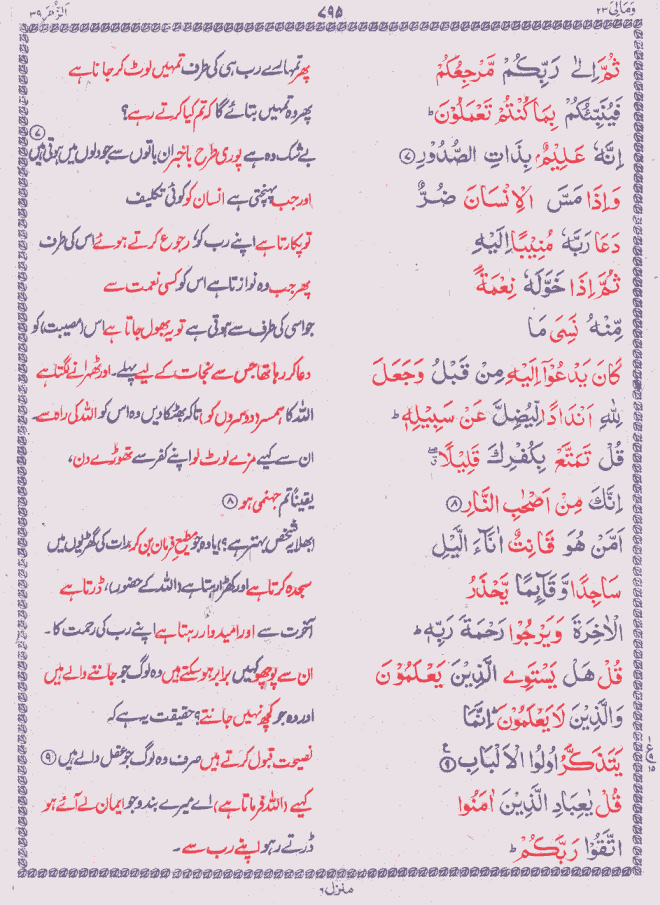 وَمَالِیَ ٢٣ ٧٩٥ اَلزُّمَر ٣٩
ثُمَّ اِلٰى رَبِّكُمْ مَّرْجِعُكُمْ پھر تمہارے رب ہی کی طرف تمہیں لوٹ کر جانا ہے
فَيُنَبِّئُكُمْ بِمَا كُنْتُمْ تَعْمَلُوْنَ ؕ پھر وہ تمہیں بتائے گا کہ تم کیا کرتے رہے؟
اِنَّهٗ عَلِيْمٌۢ بِذَاتِ الصُّدُوْرِ ۝٧ بے شک وہ ہے پوری طرح باخبر ان باتوں سے جو دلوں میں ہوتی ہیں ۝٧
وَاِذَا مَسَّ الْاِنْسَانَ ضُرٌّ اور جب پہنچتی ہے انسان کو کوئی تکلیف
دَعَا رَبَّهٗ مُنِيْبًا اِلَيْهِ تو پکارتا ہے اپنے رب کو رجوع کرتے ہوئے اس کی طرف
ثُمَّ اِذَا خَوَّلَهٗ نِعْمَةً پھر جب وہ نوازتا ہے اس کو کسی نعمت سے
مِّنْهُ نَسِيَ مَا جو اسی کی طرف سے ہوتی ہے تو یہ بھول جاتا ہے اس (مصیبت) کو
كَانَ يَدْعُوْٓا اِلَيْهِ مِنْ قَبْلُ وَجَعَلَ دعا کر رہا تھا جس سے نجات کے لیے پہلے۔ اور ٹھہرانے لگتا ہے
لِلّٰهِ اَنْدَادًا لِّيُضِلَّ عَنْ سَبِيْلِهٖ ؕ اللہ کا ہمسر (دوسروں کو) تاکہ بھٹکا دیں وہ اس کو اللہ کی راہ سے۔
قُلْ تَمَتَّعْ بِكُفْرِكَ قَلِيْلًا ان سے کہیے مزے لوٹ لو اپنے کفر سے تھوڑے دن،
اِنَّكَ مِنْ اَصْحٰبِ النَّارِ ۝٨ یقیناً تم جہنمی ہو ۝٨
اَمَّنْ هُوَ قَانِتٌ اٰنَآءَ الَّيْلِ (بھلا یہ شخص بہتر ہے؟) یا وہ جو مطیع فرمان بن کر رات کی گھڑیوں میں
سَاجِدًا وَّقَآئِمًا يَّحْذَرُ سجدہ کرتا ہے اور کھڑا رہتا ہے (اللہ کے حضور)، ڈرتا ہے
الْاٰخِرَةَ وَيَرْجُوْا رَحْمَةَ رَبِّهٖ ؕ آخرت سے اور امیدوار رہتا ہے اپنے رب کی رحمت کا۔
قُلْ هَلْ يَسْتَوِي الَّذِيْنَ يَعْلَمُوْنَ ان سے پوچھو کہیں برابر ہو سکتے ہیں وہ لوگ جو جاننے والے ہیں
وَالَّذِيْنَ لَا يَعْلَمُوْنَ ؕ اِنَّمَا اور وہ جو کچھ نہیں جانتے؟ حقیقت یہ ہے کہ
يَتَذَكَّرُ اُولُوا الْاَلْبَابِ ۝٩ نصیحت قبول کرتے ہیں صرف وہ لوگ جو عقل والے ہیں ۝٩
قُلْ يٰعِبَادِ الَّذِيْنَ اٰمَنُوا کہیے (اللہ فرماتا ہے) اے میرے بندو جو ایمان لے آئے ہو
اتَّقُوْا رَبَّكُمْ ؕ ڈرتے رہو اپنے رب سے۔
منزل ٦